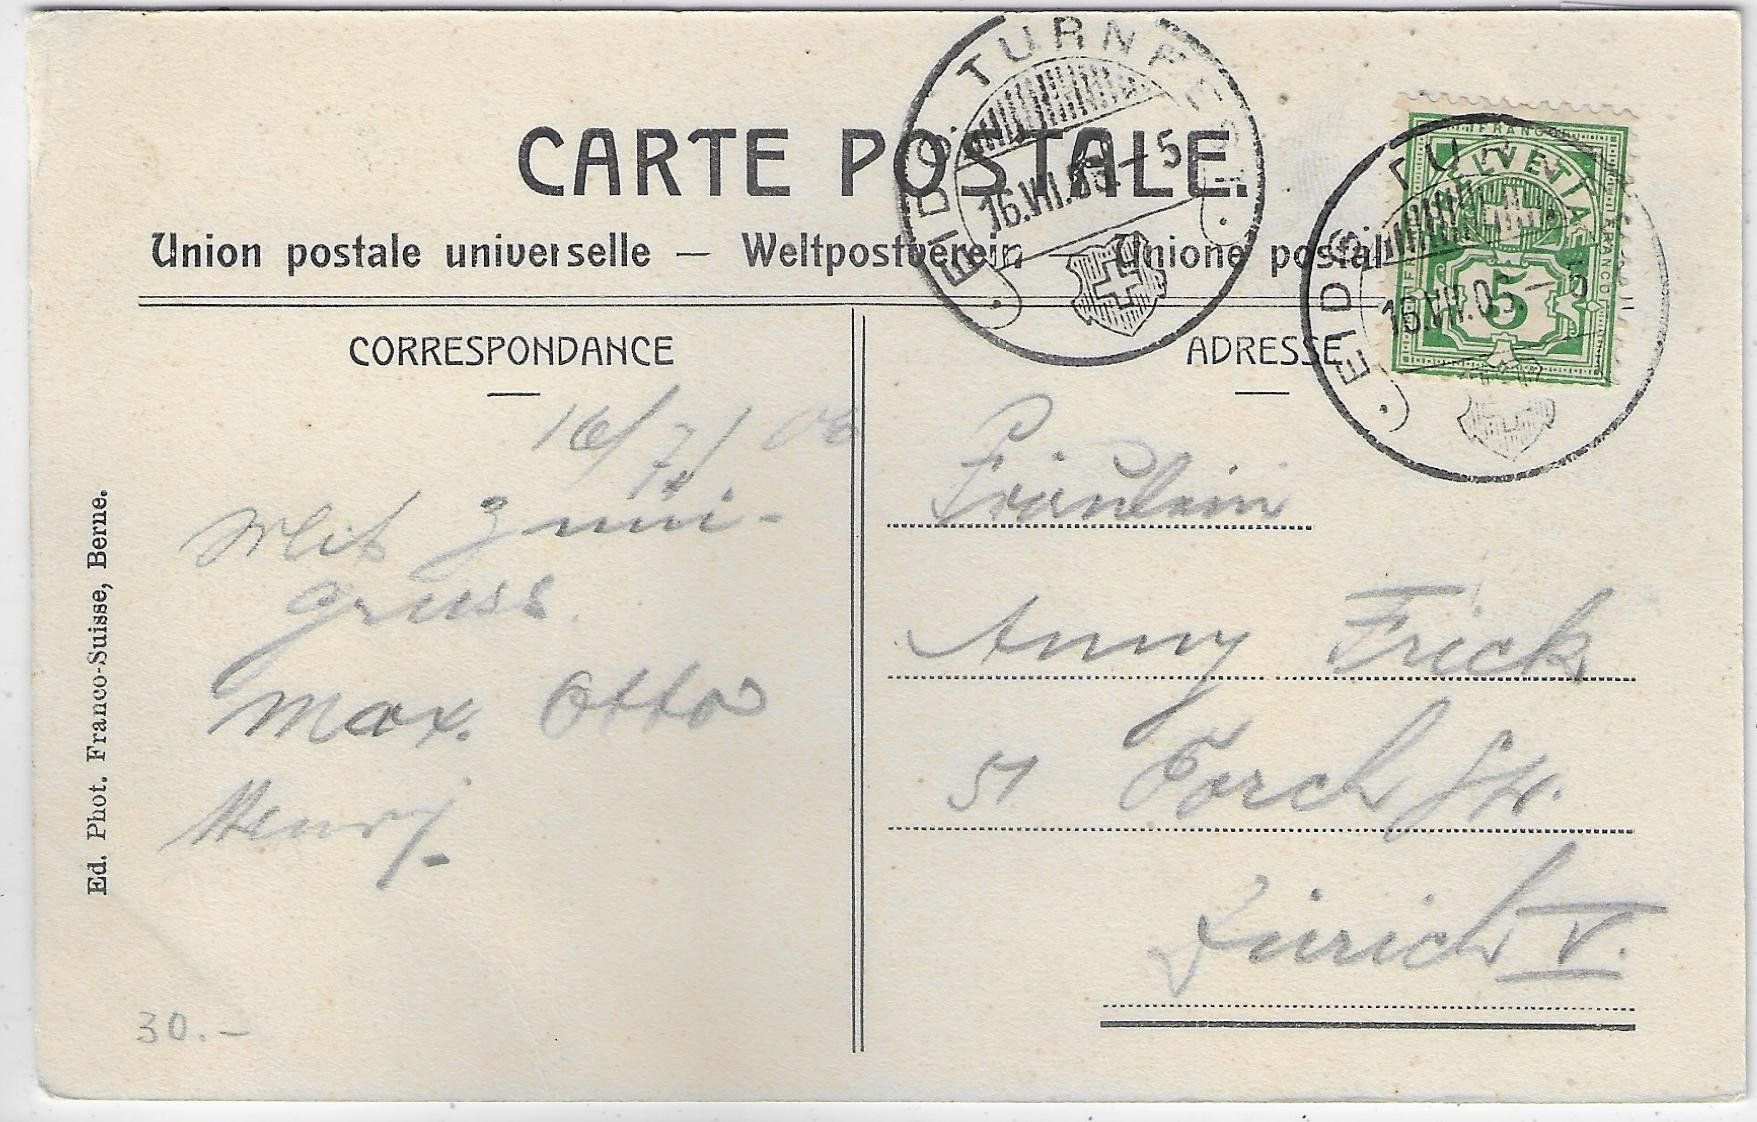 CARTE POSTALE.
Union postale universelle — Weltpostverein — Unione postale
CORRESPONDANCE
ADRESSE
EIDG. TURNFEST
16.VII.05.–5
EIDG. TUR
16.VII.05.–5
FRANCO
HELVETIA
FRANCO
5
16/7/06
Mit
Gruss.
Max. Otto
Henry.
Fräulein
Anny Frick
51 Forch Str.
Zürich V.
Ed. Phot. Franco-Suisse, Berne.
30.–